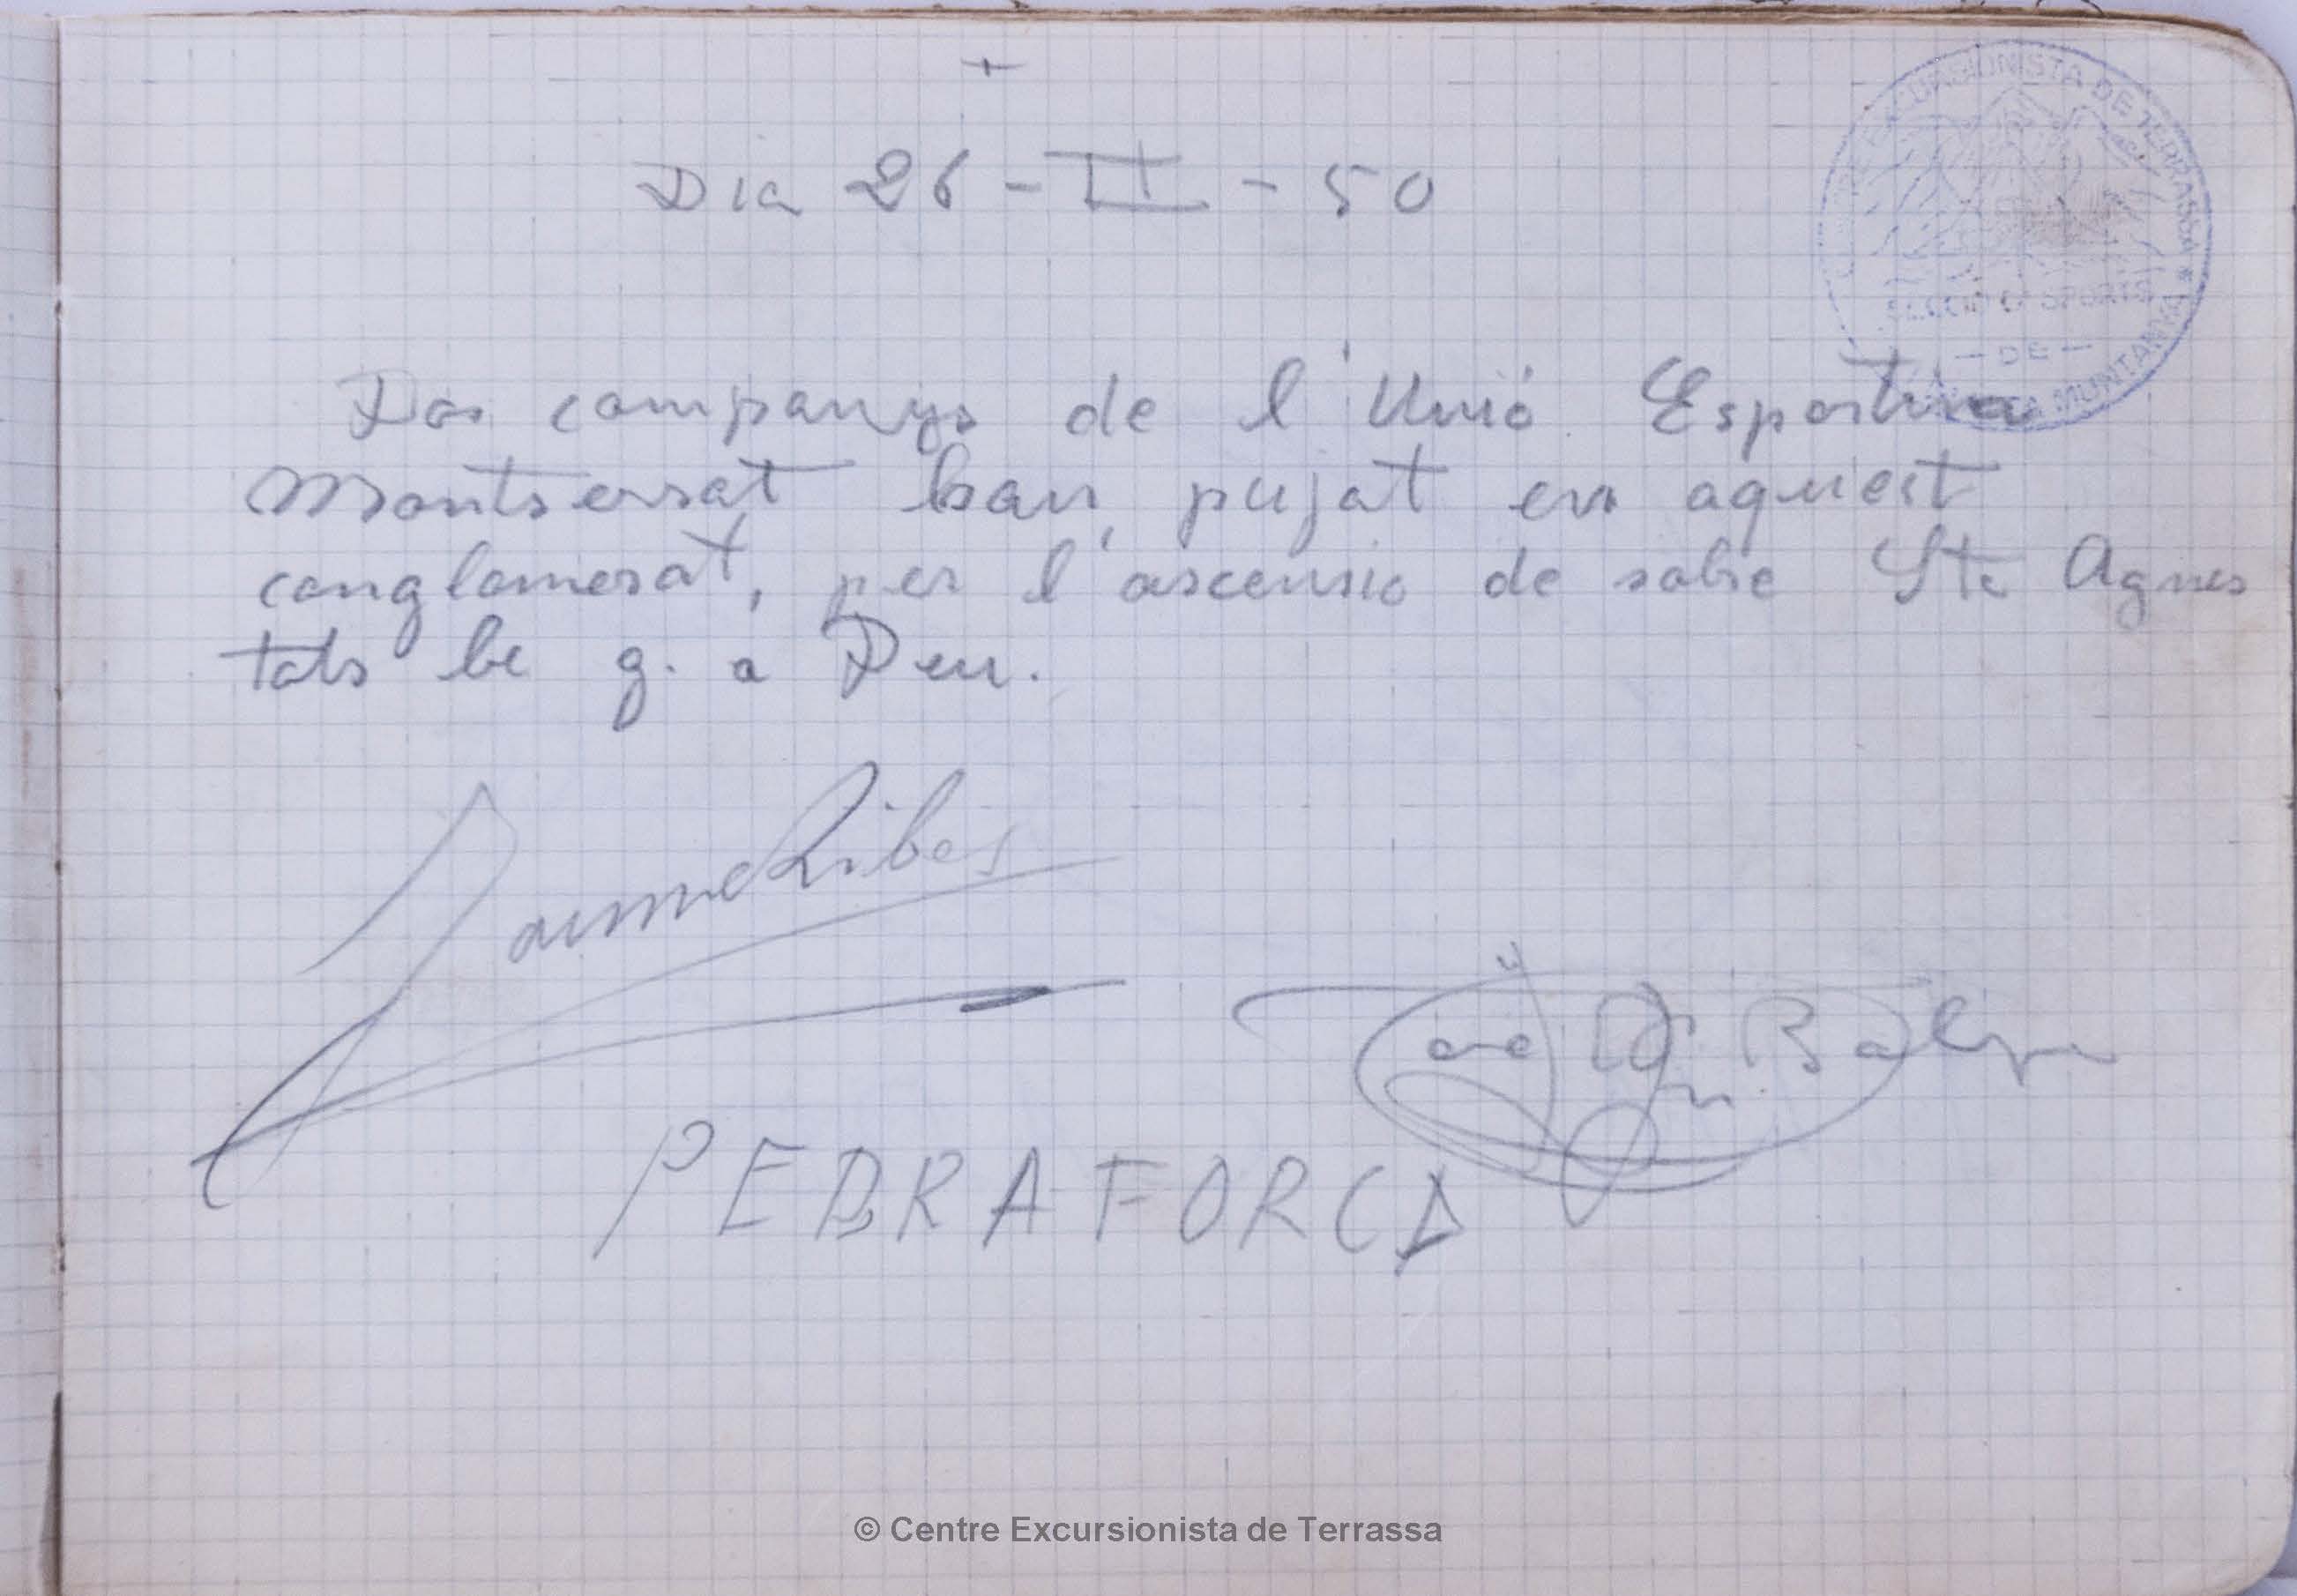 +
Dia 26 - II - 50
CENTRE EXCURSIONISTA DE TERRASSA * SECCIÓ D'ESPORTS - DE - MUNTANYA
Dos companys de l'Unió Esportiva
Montserrat han pujat en aquest
conglomerat, per l'ascensio de sobre Sta Agnes
tots be g. a Deu.
Jaume Ribes
PEDRAFORCA
© Centre Excursionista de Terrassa